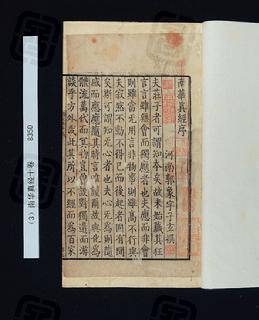 南華真經序
河南郭象字子玄撰
夫莊子者可謂知本矣故未始藏其狂
言言雖無會而獨應者也夫應而非會
則雖當無用言非物事則雖高不行與
夫寂然不動不得已而後起者固有間
矣斯可謂知無心者也夫心無爲則隨
感而應應隨其時言唯謹爾故與化爲
體流萬代而冥物豈曾設對獨遘而游
談乎方外哉此其所以不經而爲百家
（3）南华真经十卷 8350